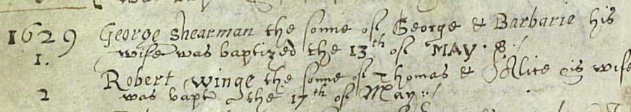 1629 George Shearman the sonne of George & Barbarie his
1. wife was baptized the 13th of MAY.
Robert Winge the sonne of Thomas & Alice his wife
2 was bapt the 17th of May